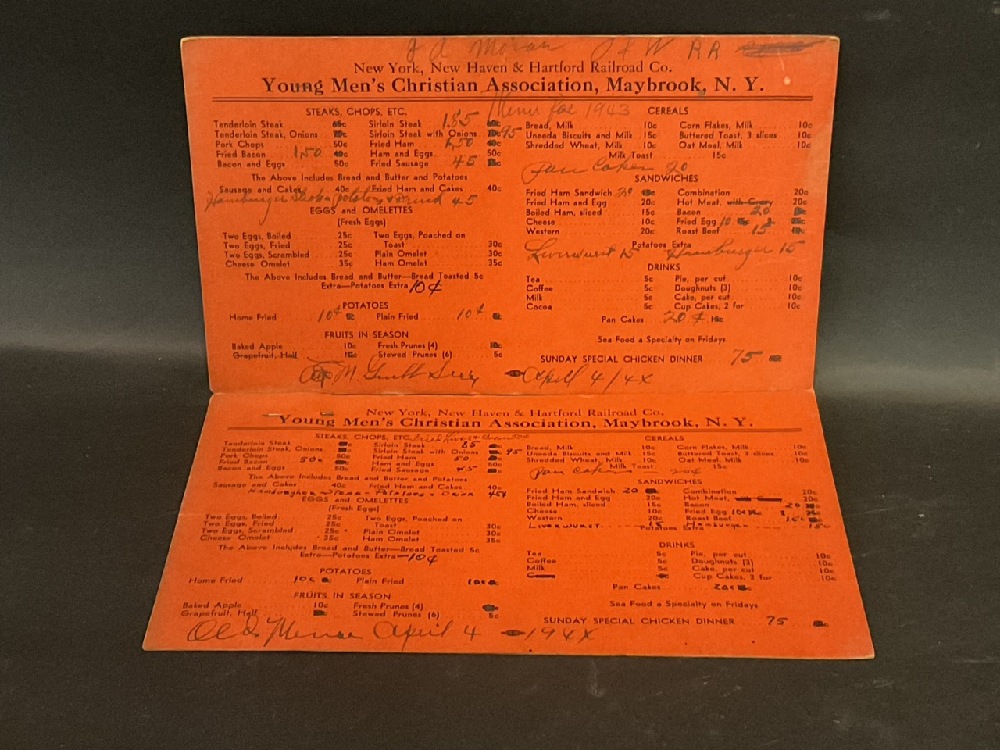 J A Moran J & W RR
New York, New Haven & Hartford Railroad Co.
Young Men's Christian Association, Maybrook, N. Y.
Menu for 1943
STEAKS, CHOPS, ETC. CEREALS
Tenderloin Steak Sirloin Steak 1.85 Bread, Milk 10c Corn Flakes, Milk 10c
Tenderloin Steak, Onions Sirloin Steak with Onions 95 Uneeda Biscuits and Milk 15c Buttered Toast, 3 slices 10c
Pork Chops 50c Fried Ham Shredded Wheat, Milk 10c Oat Meal, Milk 10c
Fried Bacon 1.50 Ham and Eggs 50c Milk Toast 15c
Bacon and Eggs 50c Fried Sausage 45 Pan Cakes 20
The Above Includes Bread and Butter and Potatoes SANDWICHES
Sausage and Cakes 40c Fried Ham and Cakes 40c Fried Ham Sandwich 20 Combination 20c
Hamburger Steak potatoes & Bread 45 Fried Ham and Egg 20c Hot Meat, with Gravy 20c
EGGS and OMELETTES Boiled Ham, sliced 15c Bacon 20
(Fresh Eggs) Cheese 10c Fried Egg 10
Western 20c Roast Beef 15
Two Eggs, Boiled 25c Two Eggs, Poached on Potatoes Extra
Two Eggs, Fried 25c Toast 30c Liverwurst 15 Hamburger 15
Two Eggs, Scrambled 25c Plain Omelet 30c DRINKS
Cheese Omelet 35c Ham Omelet 35c Tea 5c Pie, per cut 10c
The Above Includes Bread and Butter—Bread Toasted 5c Coffee 5c Doughnuts (3) 10c
Extra—Potatoes Extra 10¢ Milk 5c Cake, per cut 10c
Cocoa 5c Cup Cakes, 2 for 10c
POTATOES Pan Cakes 20¢
Home Fried 10¢ Plain Fried 10¢
FRUITS IN SEASON Sea Food a Specialty on Fridays
Baked Apple 10c Fresh Prunes (4)
Grapefruit, Half Stewed Prunes (6) 5c SUNDAY SPECIAL CHICKEN DINNER 75
April 4/4X
New York, New Haven & Hartford Railroad Co.
Young Men's Christian Association, Maybrook, N. Y.
STEAKS, CHOPS, ETC. CEREALS
Tenderloin Steak Sirloin Steak 85 Bread, Milk 10c Corn Flakes, Milk 10c
Tenderloin Steak, Onions Sirloin Steak with Onions 95 Uneeda Biscuits and Milk 15c Buttered Toast, 3 slices 10c
Pork Chops 50c Fried Ham 50 Shredded Wheat, Milk 10c Oat Meal, Milk 10c
Fried Bacon 50c Ham and Eggs 50c Milk Toast 15c
Bacon and Eggs 50c Fried Sausage 45 Pan Cakes 20¢
The Above Includes Bread and Butter and Potatoes SANDWICHES
Sausage and Cakes 40c Fried Ham and Cakes 40c Fried Ham Sandwich 20 Combination 20c
Hamburger Steak - Potatoes - Bread 45¢ Fried Ham and Egg 20c Hot Meat, 20c
EGGS and OMELETTES Boiled Ham, sliced 15c Bacon 20
(Fresh Eggs) Cheese 10c Fried Egg 10¢
Two Eggs, Boiled 25c Two Eggs, Poached on Western 20c Roast Beef 15c
Two Eggs, Fried 25c Toast 30c LIVERWURST 15 Hamburger 15c
Two Eggs, Scrambled 25c Plain Omelet 30c Potatoes Extra
Cheese Omelet 35c Ham Omelet 35c DRINKS
The Above Includes Bread and Butter—Bread Toasted 5c Tea 5c Pie, per cut 10c
Extra—Potatoes Extra—10¢ Coffee 5c Doughnuts (3) 10c
Milk 5c Cake, per cut 10c
POTATOES Cup Cakes, 2 for 10c
Home Fried 10c Plain Fried 10c Pan Cakes 20c
FRUITS IN SEASON Sea Food a Specialty on Fridays
Baked Apple 10c Fresh Prunes (4)
Grapefruit, Half Stewed Prunes (6) 5c SUNDAY SPECIAL CHICKEN DINNER 75
Old Menu April 4 - 194X